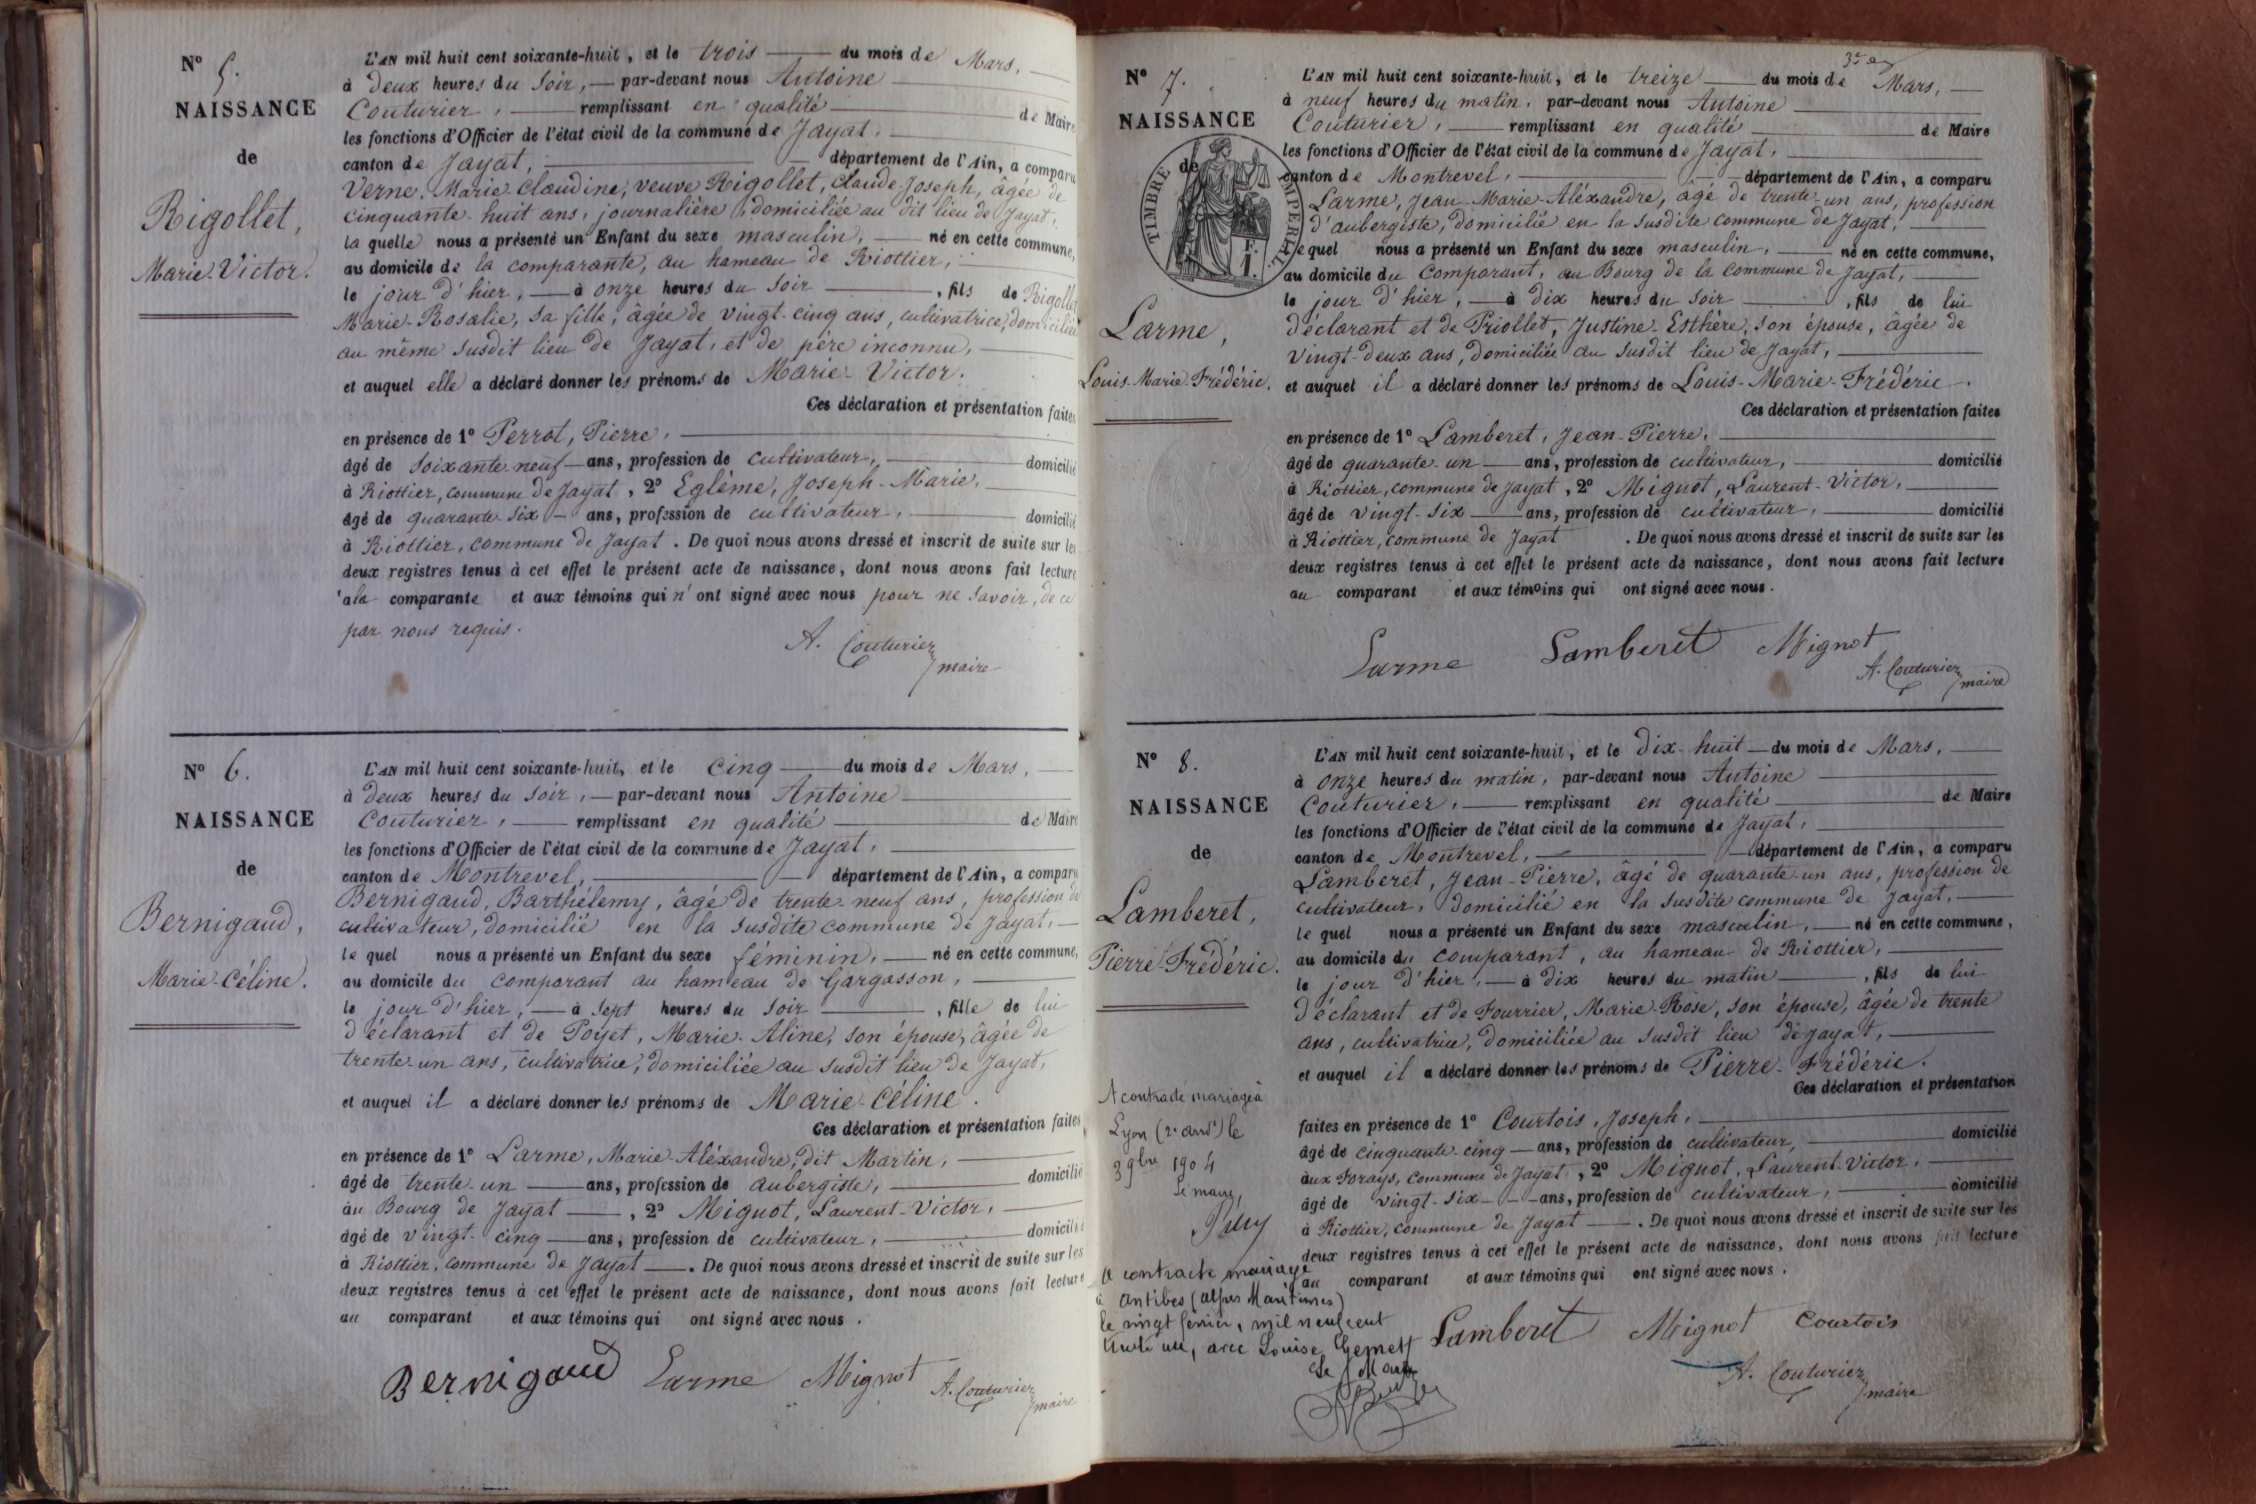 N° 5.
NAISSANCE
de
Rigollet,
Marie-Victor.
L'AN mil huit cent soixante-huit, et le trois du mois de Mars,
à deux heures du soir, par-devant nous Antoine
Couturier, remplissant en qualité de Maire
les fonctions d'Officier de l'état civil de la commune de Jayat,
canton de Jayat, département de l'Ain, a comparu
Verne, Marie Claudine, veuve Rigollet, Claude Joseph, âgée de
cinquante-huit ans, journalière, domiciliée au dit lieu de Jayat,
la quelle nous a présenté un Enfant du sexe masculin, né en cette commune,
au domicile de la comparante, au hameau de Riottier,
le jour d'hier, à onze heures du soir, fils de Rigollet
Marie-Rosalie, sa fille, âgée de vingt-cinq ans, cultivatrice, domiciliée
au même susdit lieu de Jayat, et de père inconnu,
et auquel elle a déclaré donner les prénoms de Marie-Victor.
Ces déclaration et présentation faites
en présence de 1° Perrot, Pierre,
âgé de soixante-neuf ans, profession de cultivateur, domicilié
à Riottier, commune de Jayat, 2° Eglème, Joseph-Marie,
âgé de quarante-six ans, profession de cultivateur, domicilié
à Riottier, commune de Jayat. De quoi nous avons dressé et inscrit de suite sur les
deux registres tenus à cet effet le présent acte de naissance, dont nous avons fait lecture
à la comparante et aux témoins qui n'ont signé avec nous pour ne savoir, de ce
par nous requis.
A. Couturier
maire
N° 6.
NAISSANCE
de
Bernigaud,
Marie-Céline.
L'AN mil huit cent soixante-huit, et le cinq du mois de Mars,
à deux heures du soir, par-devant nous Antoine
Couturier, remplissant en qualité de Maire
les fonctions d'Officier de l'état civil de la commune de Jayat,
canton de Montrevel, département de l'Ain, a comparu
Bernigaud, Barthélemy, âgé de trente-neuf ans, profession de
cultivateur, domicilié en la susdite commune de Jayat,
le quel nous a présenté un Enfant du sexe féminin, né en cette commune,
au domicile du comparant au hameau de Gargasson,
le jour d'hier, à sept heures du soir, fille de lui
déclarant et de Poyet, Marie-Aline, son épouse, âgée de
trente-un ans, cultivatrice, domiciliée au susdit lieu de Jayat,
et auquel il a déclaré donner les prénoms de Marie-Céline.
Ces déclaration et présentation faites
en présence de 1° Larme, Marie Aléxandre, dit Martin,
âgé de trente-un ans, profession de aubergiste, domicilié
au Bourg de Jayat, 2° Mignot, Laurent-Victor,
âgé de vingt-cinq ans, profession de cultivateur, domicilié
à Riottier, commune de Jayat. De quoi nous avons dressé et inscrit de suite sur les
deux registres tenus à cet effet le présent acte de naissance, dont nous avons fait lecture
au comparant et aux témoins qui ont signé avec nous.
Bernigaud Larme Mignot A. Couturier
maire
N° 7.
NAISSANCE
de
TIMBRE IMPERIAL
Larme,
Louis-Marie-Frédéric.
L'AN mil huit cent soixante-huit, et le treize du mois de Mars,
à neuf heures du matin, par-devant nous Antoine
Couturier, remplissant en qualité de Maire
les fonctions d'Officier de l'état civil de la commune de Jayat,
canton de Montrevel, département de l'Ain, a comparu
Larme, Jean-Marie-Aléxandre, âgé de trente-un ans, profession
d'aubergiste, domicilié en la susdite commune de Jayat,
le quel nous a présenté un Enfant du sexe masculin, né en cette commune,
au domicile du comparant, au Bourg de la commune de Jayat,
le jour d'hier, à dix heures du soir, fils de lui
déclarant et de Priollet, Justine-Esthère, son épouse, âgée de
vingt-deux ans, domiciliée au susdit lieu de Jayat,
et auquel il a déclaré donner les prénoms de Louis-Marie-Frédéric.
Ces déclaration et présentation faites
en présence de 1° Lamberet, Jean-Pierre,
âgé de quarante-un ans, profession de cultivateur, domicilié
à Riottier, commune de Jayat, 2° Mignot, Laurent-Victor,
âgé de vingt-six ans, profession de cultivateur, domicilié
à Riottier, commune de Jayat. De quoi nous avons dressé et inscrit de suite sur les
deux registres tenus à cet effet le présent acte de naissance, dont nous avons fait lecture
au comparant et aux témoins qui ont signé avec nous.
Larme Lamberet Mignot
A. Couturier
maire
N° 8.
NAISSANCE
de
Lamberet,
Pierre-Frédéric.
L'AN mil huit cent soixante-huit, et le dix-huit du mois de Mars,
à onze heures du matin, par-devant nous Antoine
Couturier, remplissant en qualité de Maire
les fonctions d'Officier de l'état civil de la commune de Jayat,
canton de Montrevel, département de l'Ain, a comparu
Lamberet, Jean-Pierre, âgé de quarante-un ans, profession de
cultivateur, domicilié en la susdite commune de Jayat,
le quel nous a présenté un Enfant du sexe masculin, né en cette commune,
au domicile du comparant, au hameau de Riottier,
le jour d'hier, à dix heures du matin, fils de lui
déclarant et de Fourrier, Marie-Rose, son épouse, âgée de trente
ans, cultivatrice, domiciliée au susdit lieu de Jayat,
et auquel il a déclaré donner les prénoms de Pierre-Frédéric.
Ces déclaration et présentation
faites en présence de 1° Courtois, Joseph,
âgé de cinquante-cinq ans, profession de cultivateur, domicilié
aux Forays, commune de Jayat, 2° Mignot, Laurent-Victor,
âgé de vingt-six ans, profession de cultivateur, domicilié
à Riottier, commune de Jayat. De quoi nous avons dressé et inscrit de suite sur les
deux registres tenus à cet effet le présent acte de naissance, dont nous avons fait lecture
au comparant et aux témoins qui ont signé avec nous.
Lamberet Mignot Courtois
A. Couturier
maire
A contracté mariage à
Lyon (2e arrdt) le
3 9bre 1904
Le maire,
A contracté mariage
à Antibes (Alpes Maritimes)
le vingt février, mil neuf cent
trente un, avec Louise Gemet
Le Maire